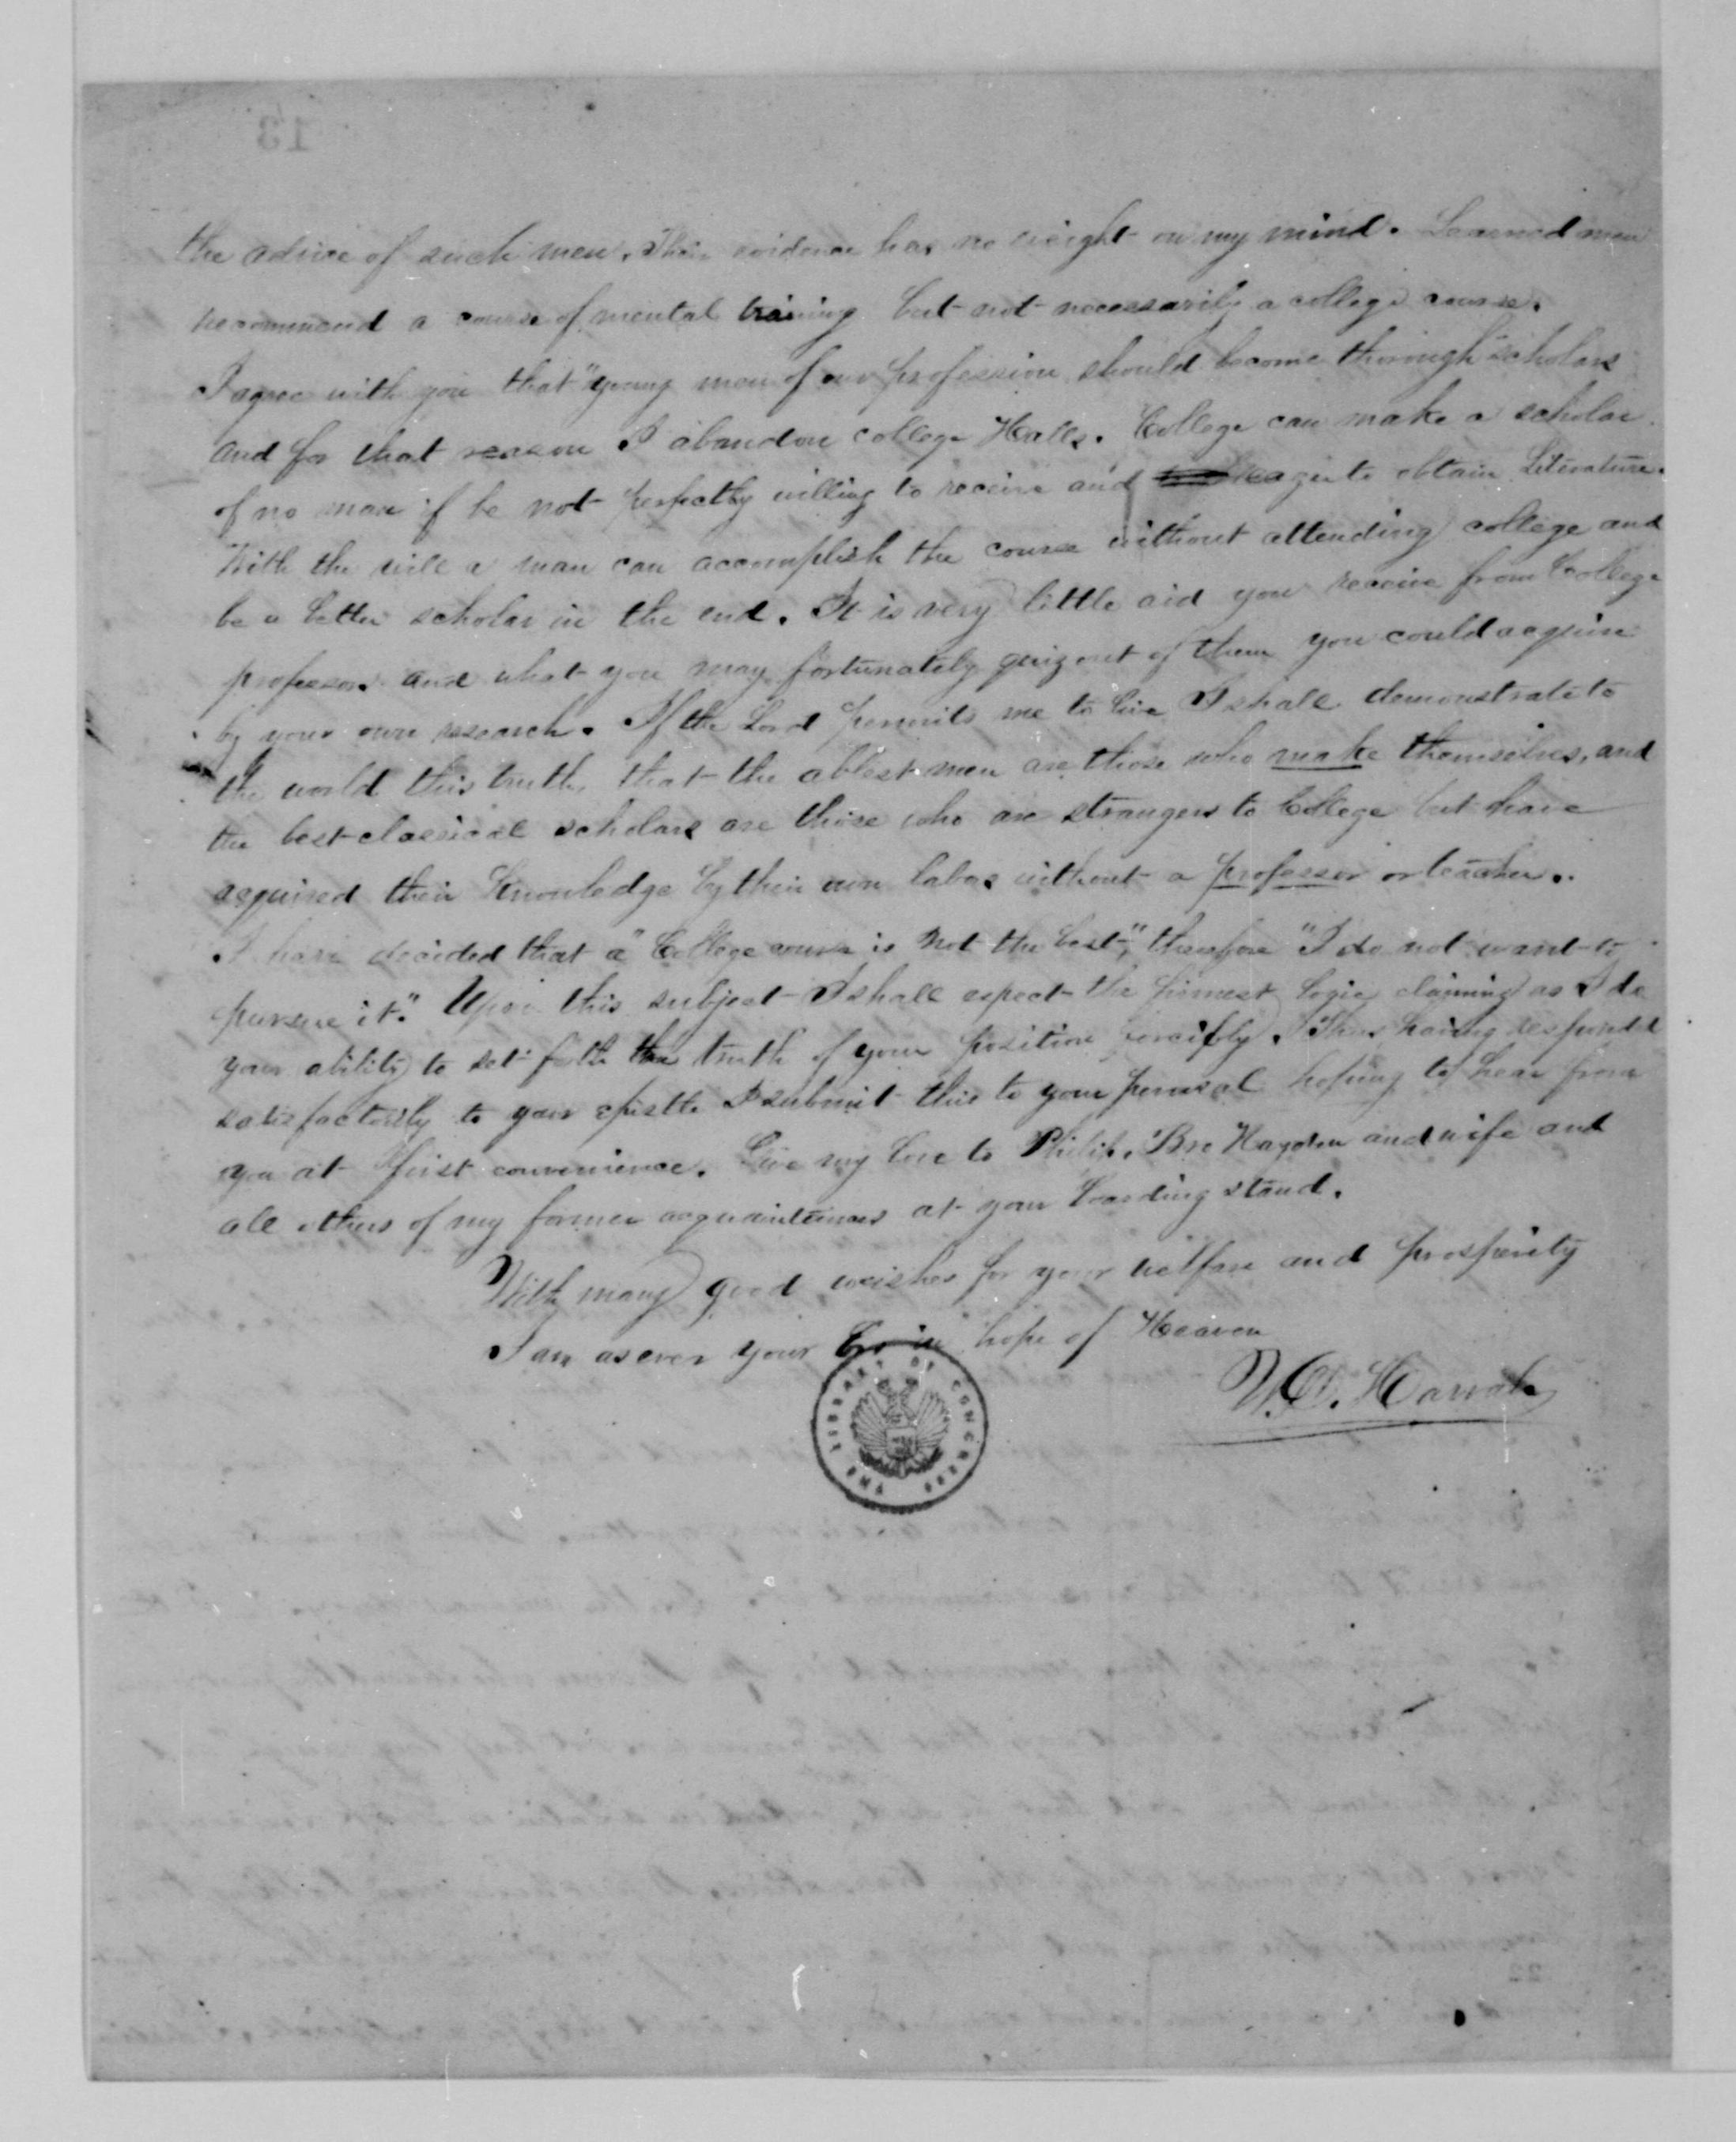 13
the advice of such men. Their evidence has no weight on my mind. Learned men
recommend a course of mental training but not necessarily a college course.
I agree with you that "young men of our profession should become thorough" scholars
and for that reason I abandon college Halls. College can make a scholar
of no man if he not perfectly willing to receive and eager to obtain Literature.
With the will a man can accomplish the course without attending college and
be a better scholar in the end. It is very little aid you receive from College
professors and what you may fortunately quiz out of them you could acquire
by your own research. If the Lord permits me to live I shall demonstrate to
the world this truth, that the ablest men are those who make themselves, and
the best classical scholars are those who are strangers to College but have
acquired their Knowledge by their own labor without a professor or teacher.
I have decided that a "College course is not the best", therefore "I do not want to
pursue it." Upon this subject I shall expect the firmest logic claiming as I do
your ability to set forth the truth of your position forcibly. Thus having responded
satisfactorily to your epistle I submit this to your perusal hoping to hear from
you at first convenience. Give my love to Philip, Bro Hayden and wife and
all others of my former acquaintances at your boarding stand.
With many good wishes for your welfare and prosperity
I am as ever your Bro in hope of Heaven
Harrah
THE LIBRARY OF CONGRESS
22